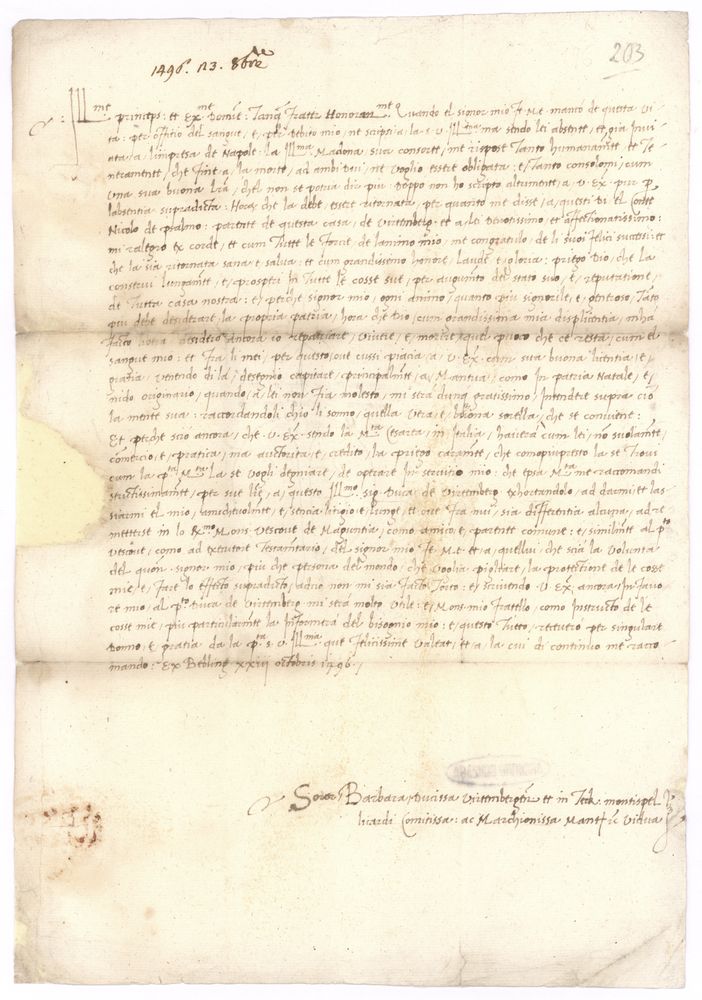 1496. 23. 8bre
203
Ill.me princeps: et Ex.me Domine: Tanq. Frater Honoran.me Quando el signor mio fe. me. mancò de questa vi-
ta: per offitio del sangue, e, per debito mio, ne scripsi a la s. v. Ill.ma ma sendo lei absente, et già Invi
ata, a l'impresa de Napole. la Ill.ma Madona sua consorte, me rispose Tanto humanamente et Te-
neramente, che fine, a la morte, ad ambidui, ne voglio essere obligata: e, Tanto consolomi, cum
una sua buona Lra, chel non se potria dir più. Doppo non ho scripto altrimente, a. v. Ex. pur p
labsentia supradicta: Hora che la debe, esser ritornata, per quanto me disse, a, questi di el Conte
Nicolo de : partente de questa casa, de Virttenberg. et a lei devotissimo, et affectionatissimo:
mi ralegro ex corde, et cum Tutte le Forcie de lanimo mio, me congratulo, de li suoi Felici sucessi: et
che la sia ritornata sana e salva: et cum grandissimo honore, laude, e, gloria: priego Dio, che la
conservi lungamente, e, prosperi in Tutte le cosse sue, per augumto del stato suo, e, reputatione,
de Tutta casa nostra: e, perche signor mio, ogni animo, quanto più signorile, e, generoso, Tãto
più debe desiderare la propria patria, hora che Dio, cum grandissima mia displicentia, mha
facto desidero ancora io repatriare, vivere, e, morire, quel puoco che ce resta, cum el
sangue mio: et Fra li mei, per questo, ove cussi piacia, a, v. Ex. cum sua buona licentia, e,
gratia, venendo di là, destino capitare, principalmente, a, Mantua, como In patria Natale, e,
nido originario, quando, a lei non Fia molesto, mi serà dunq. gratissimo, Intendere supra ciò
la mente sua: raccordandoli chio li sonno, quella vera, e, buona sorella, che se conviene:
Et perche sciò ancora, che v. Ex. sendo la M.ta Cesarea, in Italia, haverà cum lei, nõ solamente,
comercio, e, pratica, ma auctorità, e, credito, la priego caramente, che
cum la p.ta M.ta La se vogli degniare, de operare In servitio mio: che epsa M.ta me raccomandi
strectissimamente, per sue lre, a, questo Ill.mo sig. Duca, de Virttenberg. exhortandolo, ad darmi, et las
siarmi el mio, amichevolmente, e, sencia litigio, e, lunge, et ove Fra nui, sia differentia alcuna, ad re
mettersi in lo R.mo Mons. Vescovo de Maguntia, como amico, e, partente comune: e, similmente al p.to
vescovo, como ad executore Testamentario, del signor mio Fe. Me. et, a, quellui, che scià la voluntà
del quon. signor mio, più che persona del mondo, che voglia pigliare, la protectione de le cosse
mie, e, fare lo effecto supradicto, adciò non mi sia facto Torto: e, scrivendo v. Ex. ancora, In favo
re mio, al p.to duca de virttenberg. mi serà molto utile: e, Mons. mio Fratello, como Instructo de le
cosse mie, più particularmente la Informerà del bisogno mio: e, questo Tutto, per singulare
donno, e, gratia da la p.ta s. v. Ill.ma que Felicissime valeat, et a, la cui di continuo me racco
mando: Ex Bebling. xxiii octobris 1496.
Soror Barbara, Ducissa Virttenbergen. et in Teck. montispel
licardi Comitissa: ac Marchionissa Mant. etc Vidua